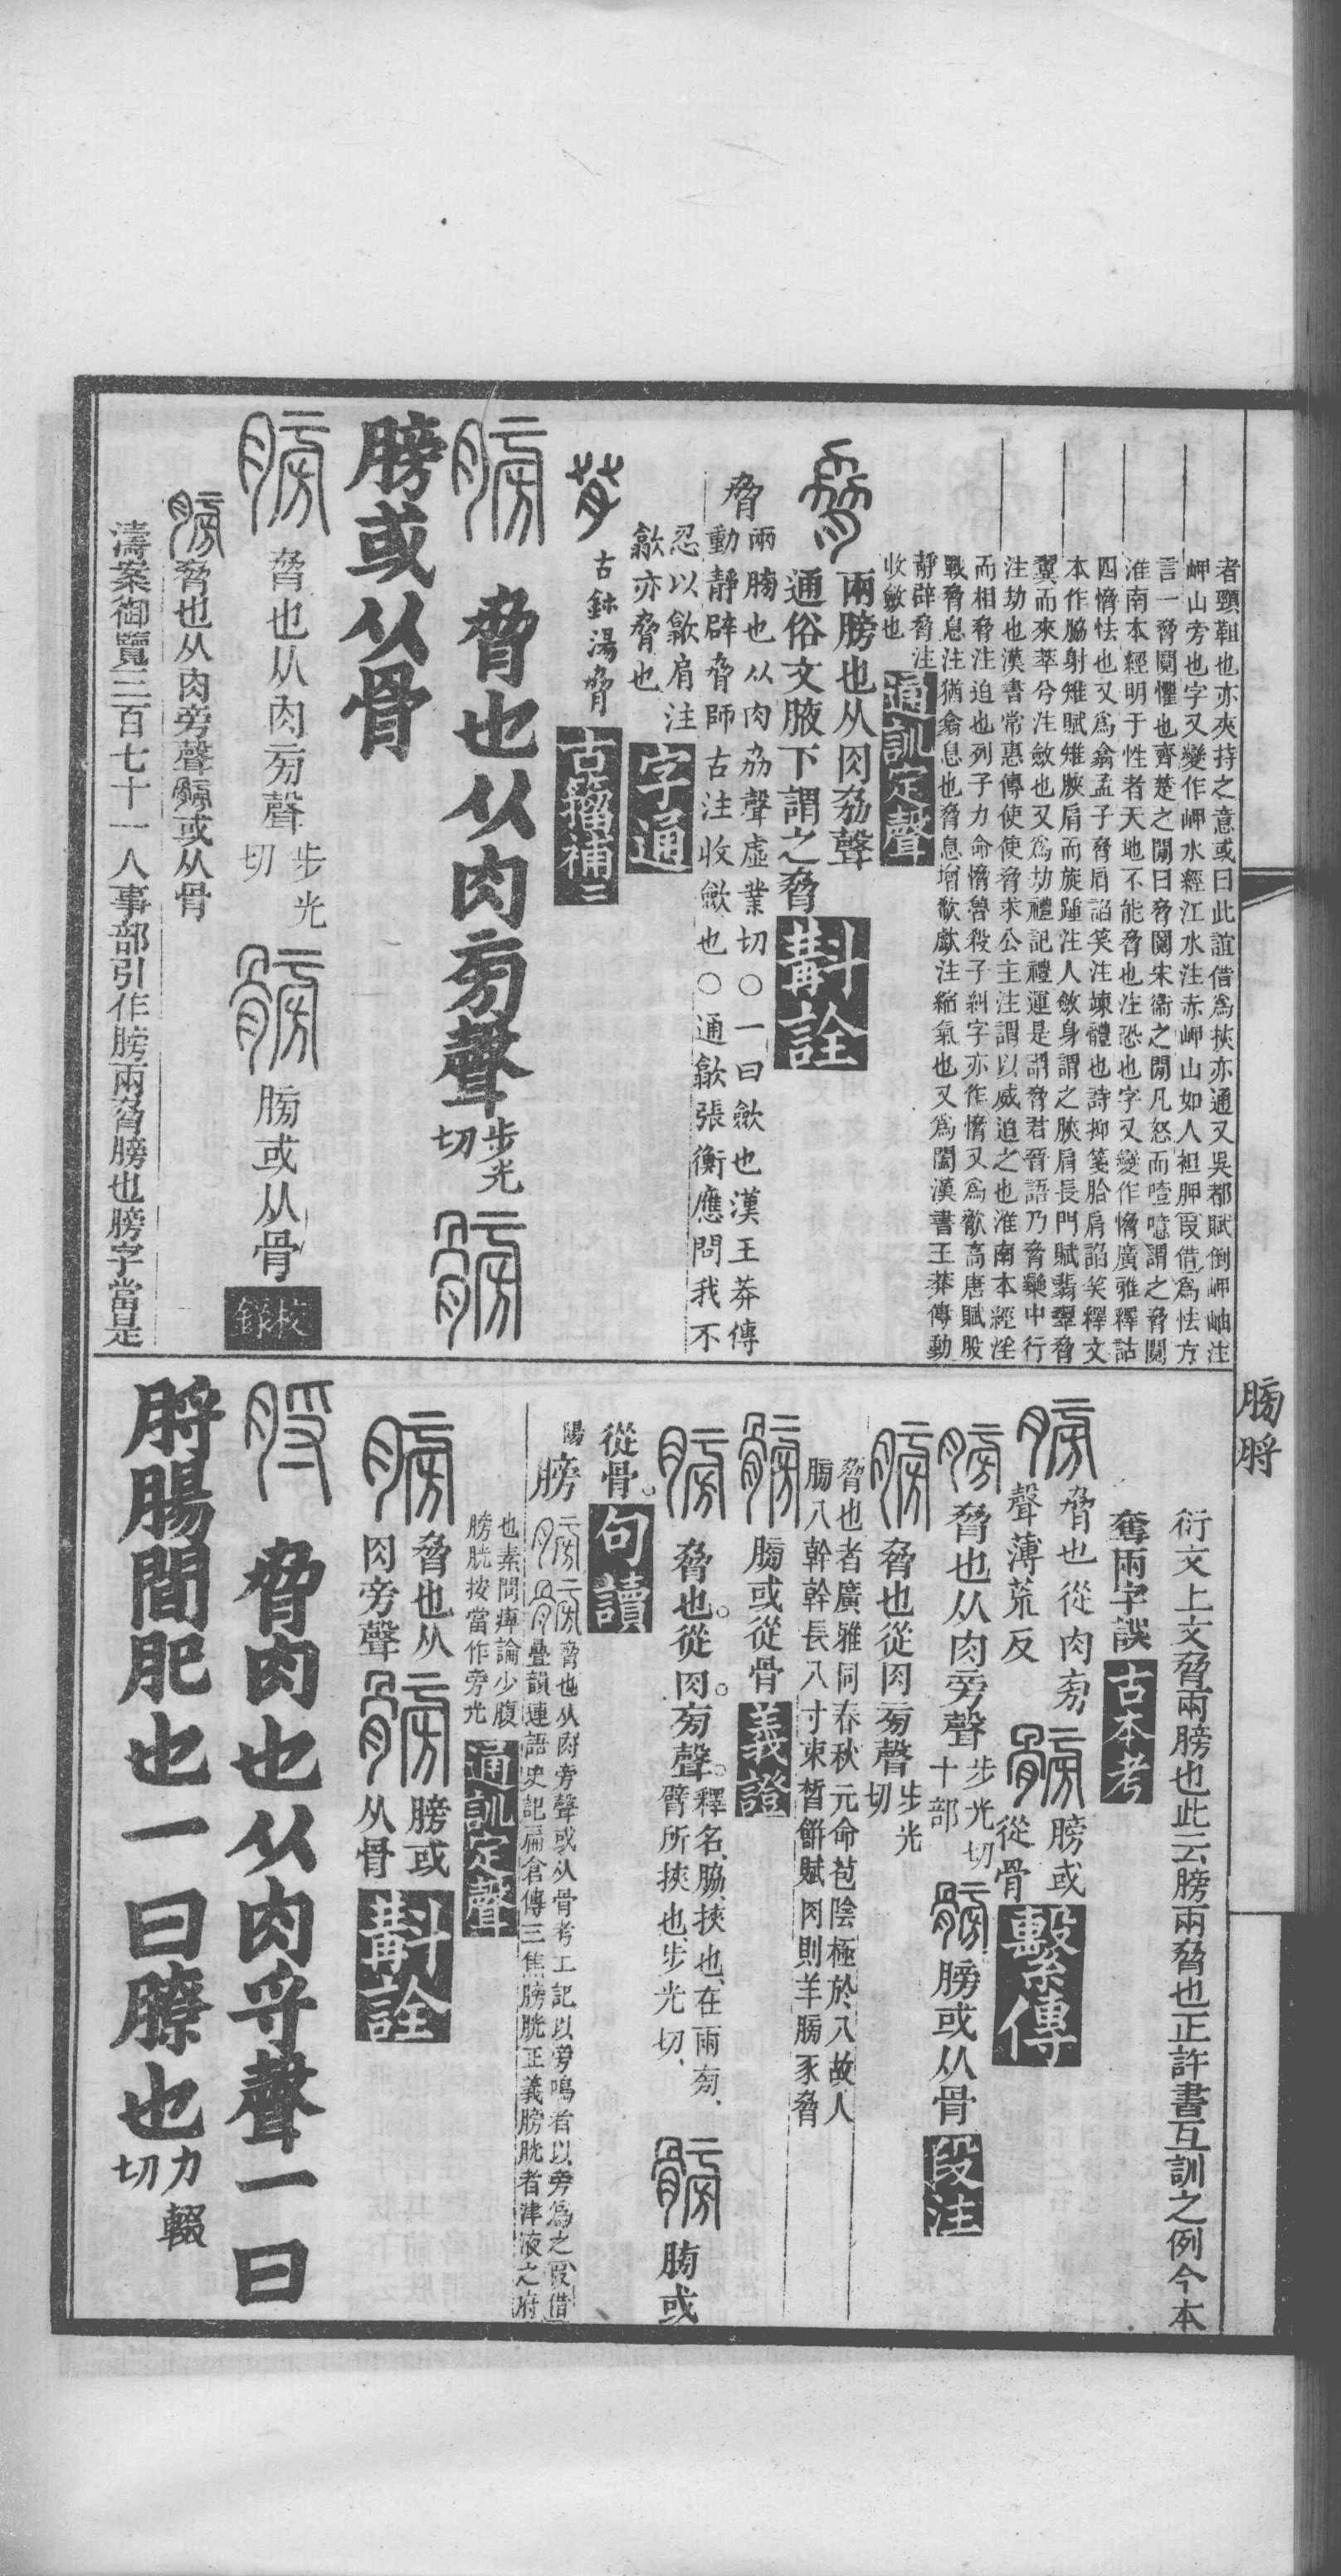 者頸靼也亦夾持之意或曰此誼借爲挾亦通又吳都賦倒岬岫注
岬山旁也字又變作岬水經江水注赤岬山如人袒胛叚借爲怯方
言一脅鬩懼也齊楚之閒曰脅鬩宋衞之閒凡怒而噎噫謂之脅鬩
淮南本經明于性者天地不能脅也注恐也字又變作愶廣雅釋詁
四愶怯也又爲翕孟子脅肩諂笑注竦體也詩抑箋胎肩諂笑釋文
本作脇射雉賦雉脥肩而旋踵注人斂身謂之脥肩長門賦翡翠脅
翼而來萃兮注斂也又爲劫禮記禮運是謂脅君晉語乃脅欒中行
注劫也漢書常惠傳使使脅求公主注謂以威迫之也淮南本經淫
而相脅注迫也列子力命愶魯殺子糾字亦作愶又爲歙高唐賦股
戰脅息注猶翕息也脅息增欷獻注縮氣也又爲闔漢書王莽傳動
靜辟脅注
收斂也
通訓定聲
兩膀也从肉劦聲
通俗文腋下謂之脅
斠詮
脅
兩膀也从肉劦聲虛業切○一曰歛也漢王莽傳
動靜辟脅師古注收歛也○通歙張衡應問我不
忍以歙肩注
歙亦脅也
字通
古鉥湯脅
古籀補二
脅也从肉旁聲步光切
膀或从骨
脅也从肉旁聲步光切
膀或从骨
校錄
脅也从肉旁聲或从骨
濤案御覽三百七十一人事部引作膀兩脅膀也膀字當是
膀脟
衍文上文脅兩膀也此云膀兩脅也正許書互訓之例今本
奪兩字誤
古本考
脅也從肉旁
聲薄荒反
膀或
從骨
繫傳
脅也从肉旁聲步光切十部
膀或从骨
段注
脅也從肉旁聲步光切
脅也者廣雅同春秋元命苞陰極於八故人
膀八幹幹長八寸束晳餅賦肉則羊膀豕脅
膀或從骨
義證
脅也。從肉。旁聲。釋名、脇、挾也、在兩旁、臂所挾也、步光切、
膀或
從骨。
句讀
膀
脅也从肉旁聲或从骨考工記以旁鳴者以旁爲之叚借
疊韻連語史記扁倉傳三焦膀胱正義膀胱者津液之府
也素問痺論少腹
膀胱按當作旁光
陽
通訓定聲
脅也从
肉旁聲
膀或
从骨
斠詮
脅肉也从肉寽聲一曰
脟腸間肥也一曰膫也力輟切